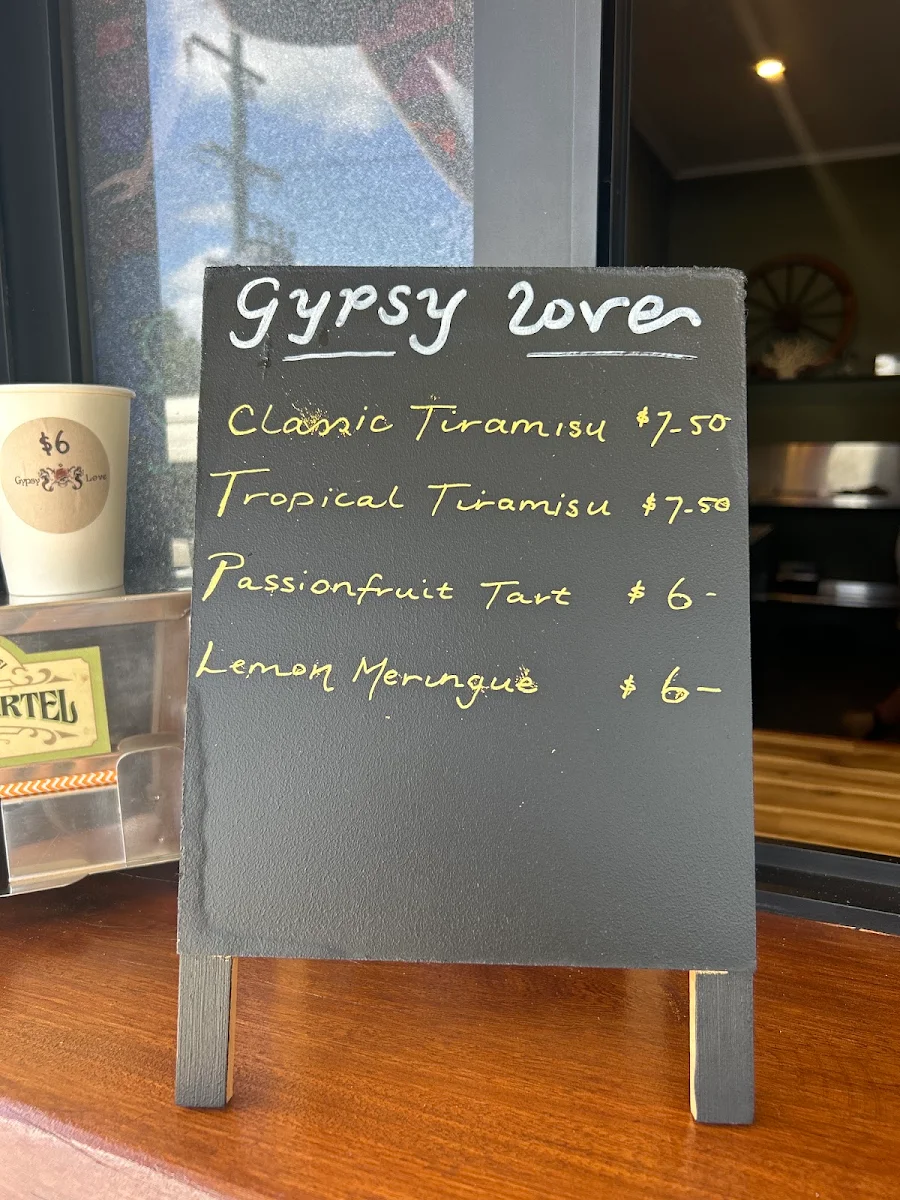 Gypsy Love
Classic Tiramisu $7-50
Tropical Tiramisu $7-50
Passionfruit Tart $6-
Lemon Meringue $6-
$6
Gypsy Love
RTEL